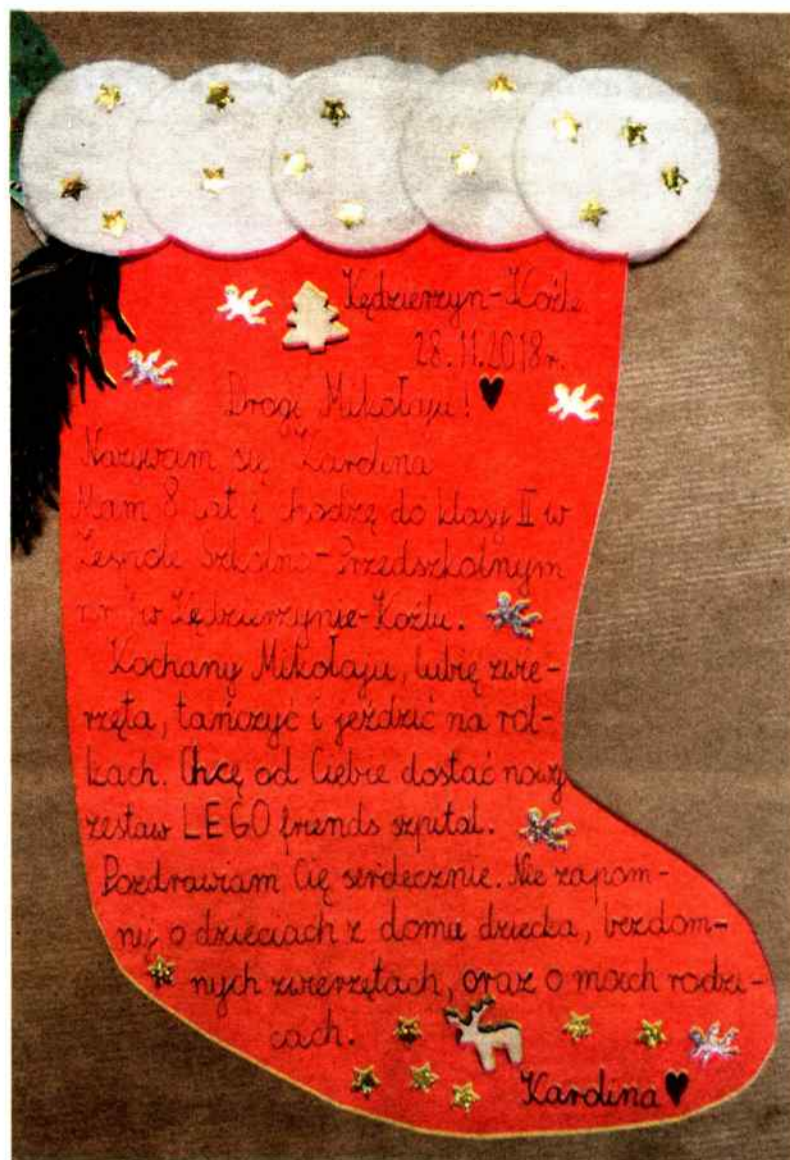 Kędzierzyn-Koźle
28.11.2018r.
Drogi Mikołaju!
Nazywam się Karolina
Mam 8 lat i chodzę do klasy II w
Zespole Szkolno-Przedszkolnym
w Kędzierzynie-Koźlu.
Kochany Mikołaju, lubię zwie-
rzęta, tańczyć i jeździć na rol-
kach. Chcę od Ciebie dostać nowy
zestaw LEGO friends szpital.
Pozdrawiam Cię serdecznie. Nie zapom-
nij o dzieciach z domu dziecka, bezdom-
nych zwierzętach, oraz o moich rodzi-
cach.
Karolina